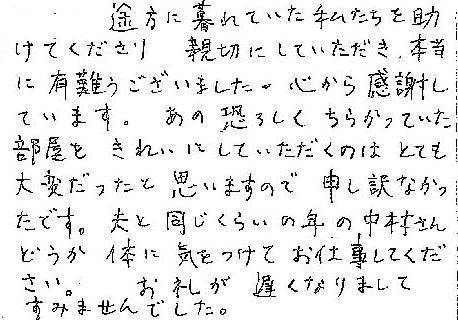 途方に暮れていた私たちを助
けてくださり 親切にしていただき、本当
に有難うございました。心から感謝し
ています。 あの恐ろしくちらかっていた
部屋を きれいにしていただくのは とても
大変だったと 思いますので 申し訳なかっ
たです。夫と同じくらいの年の中村さん
どうか 体に 気をつけて お仕事してくだ
さい。 お礼が 遅くなりまして
すみませんでした。